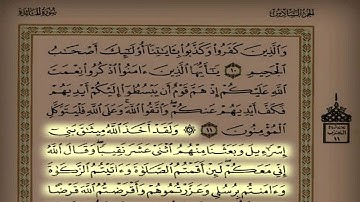 الجزء السادس
سورة المائدة
وَالَّذِينَ كَفَرُوا وَكَذَّبُوا بِآيَاتِنَا أُولَٰئِكَ أَصْحَابُ
الْجَحِيمِ ١٠ يَا أَيُّهَا الَّذِينَ آمَنُوا اذْكُرُوا نِعْمَتَ
اللَّهِ عَلَيْكُمْ إِذْ هَمَّ قَوْمٌ أَن يَبْسُطُوا إِلَيْكُمْ أَيْدِيَهُمْ
فَكَفَّ أَيْدِيَهُمْ عَنكُمْ وَاتَّقُوا اللَّهَ وَعَلَى اللَّهِ فَلْيَتَوَكَّلِ
الْمُؤْمِنُونَ ١١ ۞ وَلَقَدْ أَخَذَ اللَّهُ مِيثَاقَ بَنِي
إِسْرَائِيلَ وَبَعَثْنَا مِنْهُمُ اثْنَيْ عَشَرَ نَقِيبًا وَقَالَ اللَّهُ
إِنِّي مَعَكُمْ لَئِنْ أَقَمْتُمُ الصَّلَاةَ وَآتَيْتُمُ الزَّكَاةَ
وَآمَنتُم بِرُسُلِي وَعَزَّرْتُمُوهُمْ وَأَقْرَضْتُمُ اللَّهَ قَرْضًا
الحزب
١١